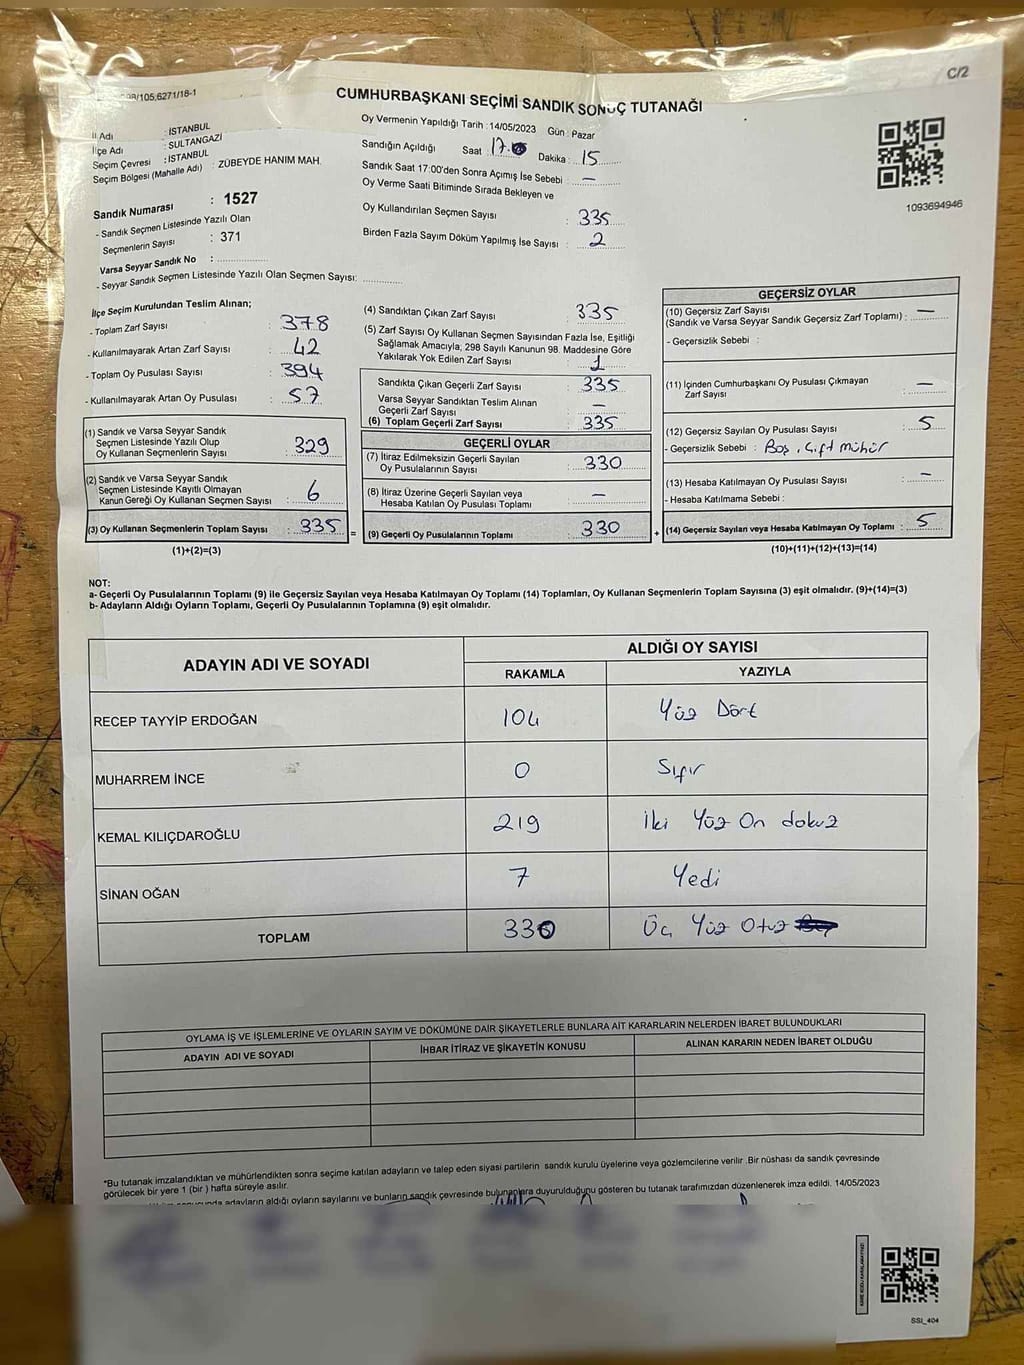 C/2
98/105,6271/18-1
CUMHURBAŞKANI SEÇİMİ SANDIK SONUÇ TUTANAĞI
İl Adı : İSTANBUL
İlçe Adı : SULTANGAZİ
Seçim Çevresi : İSTANBUL
Seçim Bölgesi (Mahalle Adı) : ZÜBEYDE HANIM MAH.
Sandık Numarası : 1527
- Sandık Seçmen Listesinde Yazılı Olan
Seçmenlerin Sayısı : 371
Varsa Seyyar Sandık No :
- Seyyar Sandık Seçmen Listesinde Yazılı Olan Seçmen Sayısı:
Oy Vermenin Yapıldığı Tarih : 14/05/2023 Gün : Pazar
Sandığın Açıldığı Saat : 17. Dakika : 15
Sandık Saat 17:00'den Sonra Açımış İse Sebebi : —
Oy Verme Saati Bitiminde Sırada Bekleyen ve
Oy Kullandırılan Seçmen Sayısı : 335
Birden Fazla Sayım Döküm Yapılmış İse Sayısı : 2
1093694946
İlçe Seçim Kurulundan Teslim Alınan;
- Toplam Zarf Sayısı : 378
- Kullanılmayarak Artan Zarf Sayısı : 42
- Toplam Oy Pusulası Sayısı : 394
- Kullanılmayarak Artan Oy Pusulası : 57
(1) Sandık ve Varsa Seyyar Sandık
Seçmen Listesinde Yazılı Olup
Oy Kullanan Seçmenlerin Sayısı : 329
(2) Sandık ve Varsa Seyyar Sandık
Seçmen Listesinde Kayıtlı Olmayan
Kanun Gereği Oy Kullanan Seçmen Sayısı : 6
(3) Oy Kullanan Seçmenlerin Toplam Sayısı : 335 =
(1)+(2)=(3)
(4) Sandıktan Çıkan Zarf Sayısı : 335
(5) Zarf Sayısı Oy Kullanan Seçmen Sayısından Fazla İse, Eşitliği
Sağlamak Amacıyla; 298 Sayılı Kanunun 98. Maddesine Göre
Yakılarak Yok Edilen Zarf Sayısı : 1
Sandıkta Çıkan Geçerli Zarf Sayısı : 335
Varsa Seyyar Sandıktan Teslim Alınan
Geçerli Zarf Sayısı : —
(6) Toplam Geçerli Zarf Sayısı : 335
GEÇERLİ OYLAR
(7) İtiraz Edilmeksizin Geçerli Sayılan
Oy Pusulalarının Sayısı : 330
(8) İtiraz Üzerine Geçerli Sayılan veya
Hesaba Katılan Oy Pusulası Toplamı : —
(9) Geçerli Oy Pusulalarının Toplamı : 330 +
GEÇERSİZ OYLAR
(10) Geçersiz Zarf Sayısı
(Sandık ve Varsa Seyyar Sandık Geçersiz Zarf Toplamı) : —
- Geçersizlik Sebebi :
(11) İçinden Cumhurbaşkanı Oy Pusulası Çıkmayan
Zarf Sayısı : —
(12) Geçersiz Sayılan Oy Pusulası Sayısı : 5
- Geçersizlik Sebebi : Boş, Çift mühür
(13) Hesaba Katılmayan Oy Pusulası Sayısı : —
- Hesaba Katılmama Sebebi :
(14) Geçersiz Sayılan veya Hesaba Katılmayan Oy Toplamı : 5
(10)+(11)+(12)+(13)=(14)
NOT:
a- Geçerli Oy Pusulalarının Toplamı (9) ile Geçersiz Sayılan veya Hesaba Katılmayan Oy Toplamı (14) Toplamları, Oy Kullanan Seçmenlerin Toplam Sayısına (3) eşit olmalıdır. (9)+(14)=(3)
b- Adayların Aldığı Oyların Toplamı, Geçerli Oy Pusulalarının Toplamına (9) eşit olmalıdır.
ADAYIN ADI VE SOYADI ALDIĞI OY SAYISI
RAKAMLA YAZIYLA
RECEP TAYYİP ERDOĞAN 104 Yüz Dört
MUHARREM İNCE 0 Sıfır
KEMAL KILIÇDAROĞLU 219 İki Yüz On dokuz
SİNAN OĞAN 7 Yedi
TOPLAM 330 Üç Yüz Otuz
OYLAMA İŞ VE İŞLEMLERİNE VE OYLARIN SAYIM VE DÖKÜMÜNE DAİR ŞİKAYETLERLE BUNLARA AİT KARARLARIN NELERDEN İBARET BULUNDUKLARI
ADAYIN ADI VE SOYADI İHBAR İTİRAZ VE ŞİKAYETİN KONUSU ALINAN KARARIN NEDEN İBARET OLDUĞU
*Bu tutanak imzalandıktan ve mühürlendikten sonra seçime katılan adayların ve talep eden siyasi partilerin sandık kurulu üyelerine veya gözlemcilerine verilir .Bir nüshası da sandık çevresinde
görülecek bir yere 1 (bir ) hafta süreyle asılır.
adayların aldığı oyların sayılarını ve bunların sandık çevresinde bulunanlara duyurulduğunu gösteren bu tutanak tarafımızdan düzenlenerek imza edildi. 14/05/2023
SSI_404